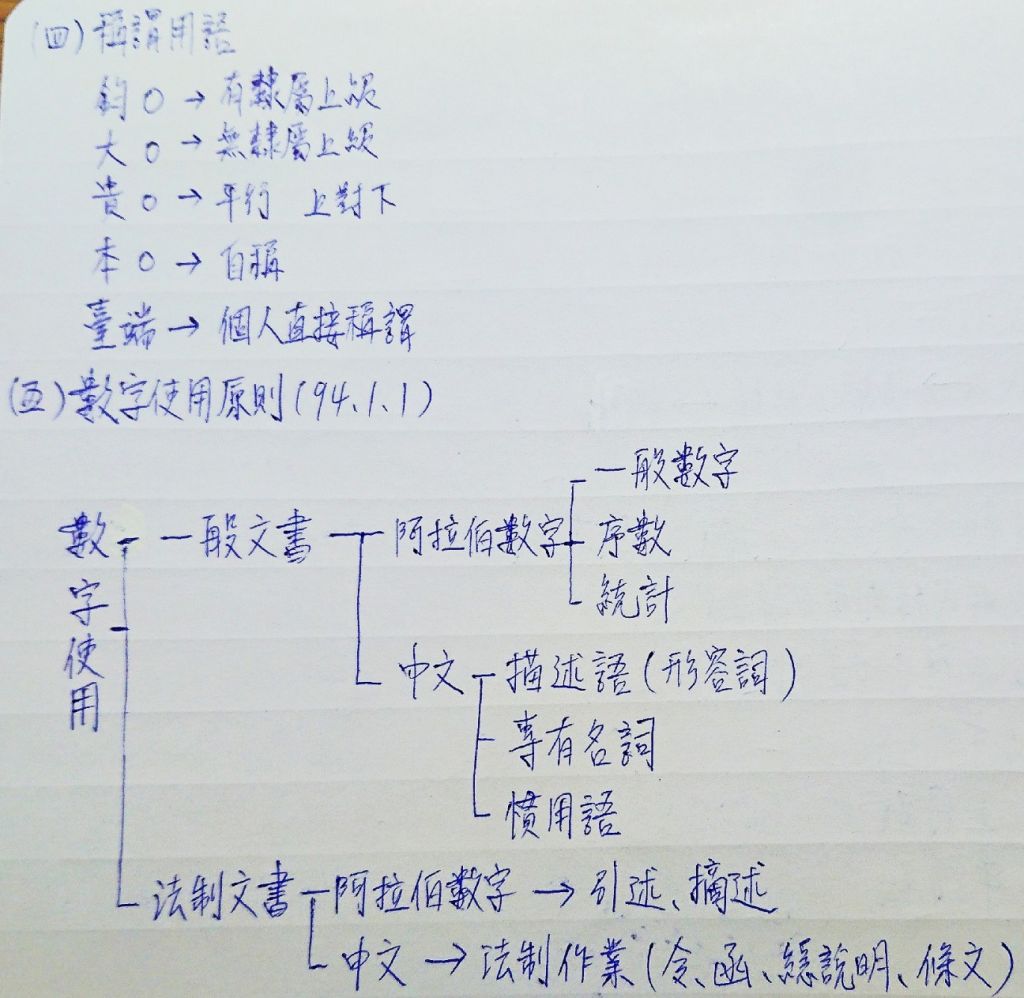 (四)稱謂用語
鈞○→有隸屬上級
大○→無隸屬上級
貴○→平行 上對下
本○→自稱
臺端→個人直接稱謂
(五)數字使用原則(94.1.1)
數字使用
一般文書
阿拉伯數字
一般數字
序數
統計
中文
描述語(形容詞)
專有名詞
慣用語
法制文書
阿拉伯數字→引述、摘述
中文→法制作業(令、函、總說明、條文)